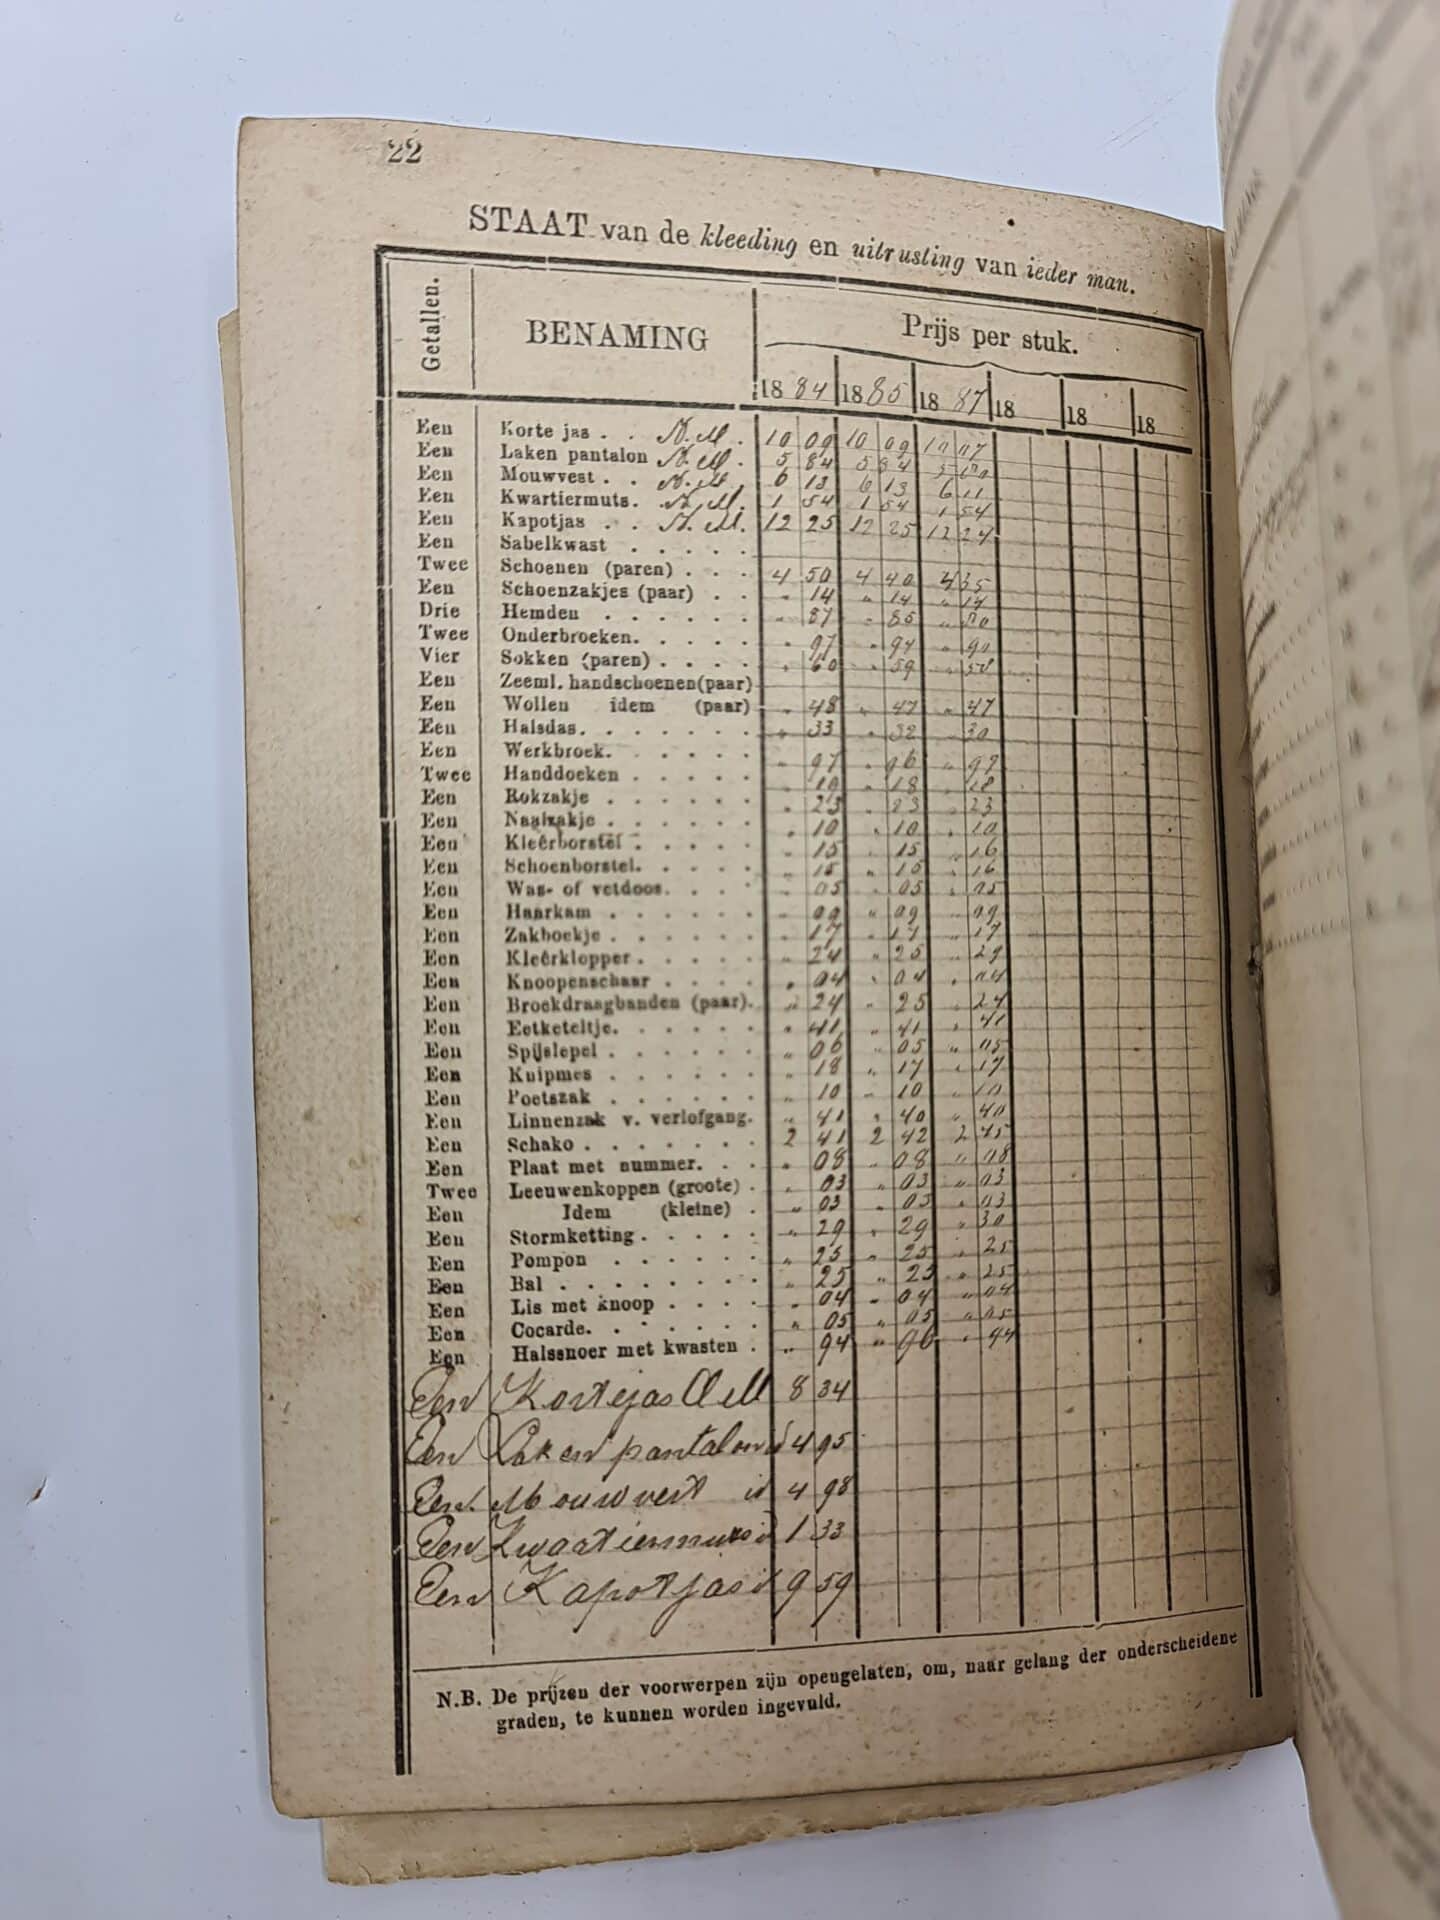 22
STAAT van de kleeding en uitrusting van ieder man.
Getallen. BENAMING Prijs per stuk.
18 84 18 85 18 87 18 18 18
Een Korte jas . . N. M. 10 09 10 09 10 07
Een Laken pantalon N. M. 5 84 5 84 5 80
Een Mouwvest . . N. M. 6 13 6 13 6 11
Een Kwartiermuts. . N. M. 1 54 1 54 1 54
Een Kapotjas . . N. M. 12 25 12 25 12 24
Een Sabelkwast . . . . .
Twee Schoenen (paren) . . . 4 50 4 40 4 35
Een Schoenzakjes (paar) . . " 14 " 14 " 14
Drie Hemden . . . . . . " 87 " 85 " 80
Twee Onderbroeken. . . . . " 97 " 94 " 90
Vier Sokken (paren) . . . . " 60 " 59 " 58
Een Zeeml. handschoenen (paar)
Een Wollen idem (paar) " 48 " 47 " 47
Een Halsdas. . . . . . . " 33 " 32 " 30
Een Werkbroek. . . . . . " 97 " 96 " 97
Twee Handdoeken . . . . . " 19 " 18 " 18
Een Rokzakje . . . . . . " 23 " 23 " 23
Een Naaizakje . . . . . . " 10 " 10 " 10
Een Kleêrborstel . . . . . " 15 " 15 " 16
Een Schoenborstel. . . . . " 15 " 15 " 16
Een Was- of vetdoos. . . . " 05 " 05 " 05
Een Haarkam . . . . . . " 09 " 09 " 09
Een Zakboekje . . . . . . " 17 " 17 " 17
Een Kleêrklopper . . . . . " 24 " 25 " 29
Een Knoopenschaar . . . . " 04 " 04 " 04
Een Broekdraagbanden (paar). " 24 " 25 " 24
Een Eetketeltje. . . . . . " 41 " 41 " 41
Een Spijslepel . . . . . . " 06 " 05 " 05
Een Knipmes . . . . . . " 18 " 17 " 17
Een Poetszak . . . . . . " 10 " 10 " 10
Een Linnenzak v. verlofgang. " 41 " 40 " 40
Een Schako . . . . . . . 2 41 2 42 2 45
Een Plaat met nummer. . . " 08 " 08 " 08
Twee Leeuwenkoppen (groote) . " 03 " 03 " 03
Een Idem (kleine) . " 03 " 03 " 03
Een Stormketting . . . . . " 29 " 29 " 30
Een Pompon . . . . . . " 25 " 25 " 25
Een Bal . . . . . . . . " 25 " 25 " 25
Een Lis met knoop . . . . " 04 " 04 " 04
Een Cocarde. . . . . . . " 05 " 05 " 05
Een Halssnoer met kwasten . " 94 " 96 " 94
Een Kortejas O M 8 34
Een Laken pantalon id 4 95
Een. Mouwvest id 4 98
Een Kwartiermuts id 1 33
Een Kapotjas id 9 59
N.B. De prijzen der voorwerpen zijn opengelaten, om, naar gelang der onderscheidene
graden, te kunnen worden ingevuld.